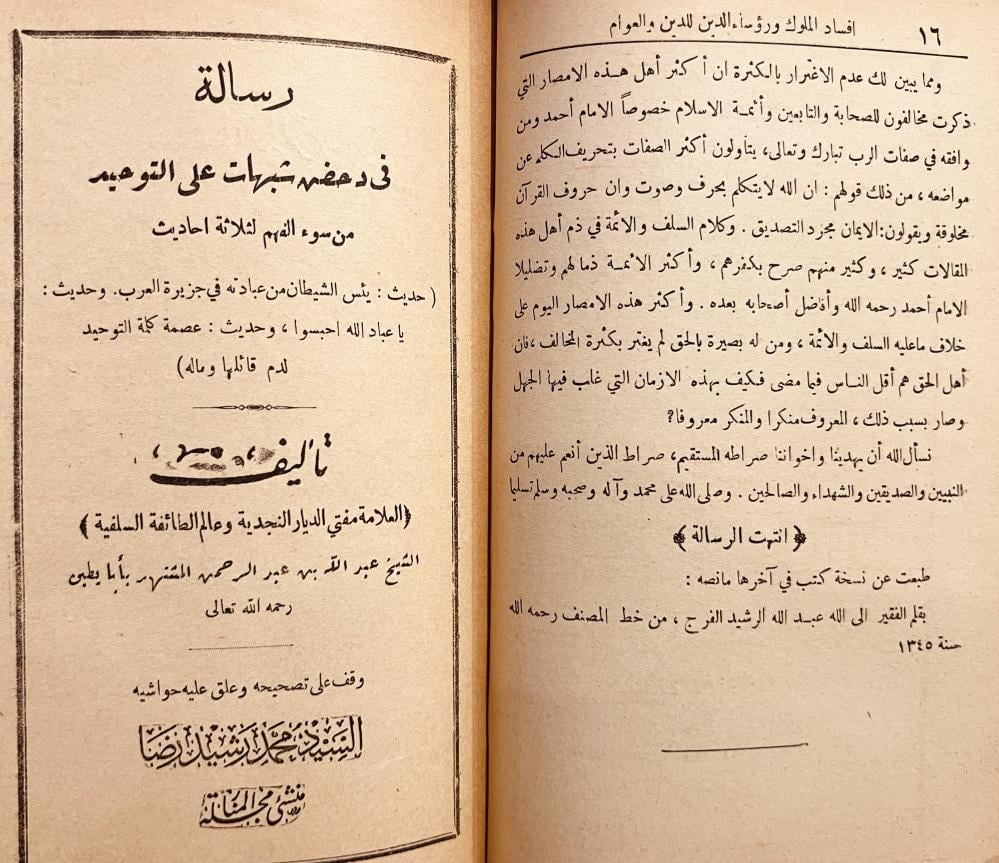 ١٦
افساد الملوك ورؤساء الدين للدين والعوام
ومما يبين لك عدم الاغترار بالكثرة ان أكثر أهل هذه الامصار التي
ذكرت مخالفون للصحابة والتابعين وأئمة الاسلام خصوصاً الامام أحمد ومن
وافقه في صفات الرب تبارك وتعالى، يتأولون أكثر الصفات بتحريف الكلم عن
مواضعه ، من ذلك قولهم : ان الله لا يتكلم بحرف وصوت وان حروف القرآن
مخلوقة ويقولون: الايمان مجرد التصديق . وكلام السلف والائمة في ذم أهل هذه
المقالات كثير ، وكثير منهم صرح بكفرهم ، وأكثر الائمة ذما لهم وتضليلا
الامام أحمد رحمه الله وأفاضل أصحابه بعده . وأكثر هذه الامصار اليوم على
خلاف ماعليه السلف والأئمة ، ومن له بصيرة بالحق لم يغتر بكثرة المخالف ، فان
أهل الحق هم أقل الناس فيما مضى فكيف بهذه الازمان التي غلب فيها الجهل
وصار بسبب ذلك ، المعروف منكرا والمنكر معروفا؟
نسأل الله أن يهدينا واخواننا صراطه المستقيم، صراط الذين أنعم عليهم من
النبيين والصديقين والشهداء والصالحين . وصلى الله على محمد وآله وصحبه وسلم تسليما
﴿ انتهت الرسالة ﴾
طبعت عن نسخة كتب في آخرها مانصه :
بقلم الفقير الى الله عبد الله الرشيد الفرج ، من خط المصنف رحمه الله
سنة ١٣٤٥
رسالة
فى دحض شبهات على التوحيد
من سوء الفهم لثلاثة احاديث
( حديث : يئس الشيطان من عبادته في جزيرة العرب. وحديث :
يا عباد الله احبسوا ، وحديث : عصمة كلمة التوحيد
لدم قائلها وماله)
تأليف
﴿العلامة مفتي الديار النجدية وعالم الطائفة السلفية ﴾
الشيخ عبد الله بن عبد الرحمن المشتهر بأبا بطين
رحمه الله تعالى
وقف على تصحيحه وعلق عليه حواشيه
السيد محمد رشيد رضا
منشئ مجلة المنار